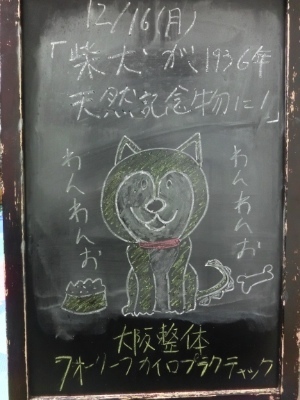 12/16(月)
「柴犬が1936年
天然記念物に!」
わんわんお
わんわんお
大阪整体
フォーリーフカイロプラクティック